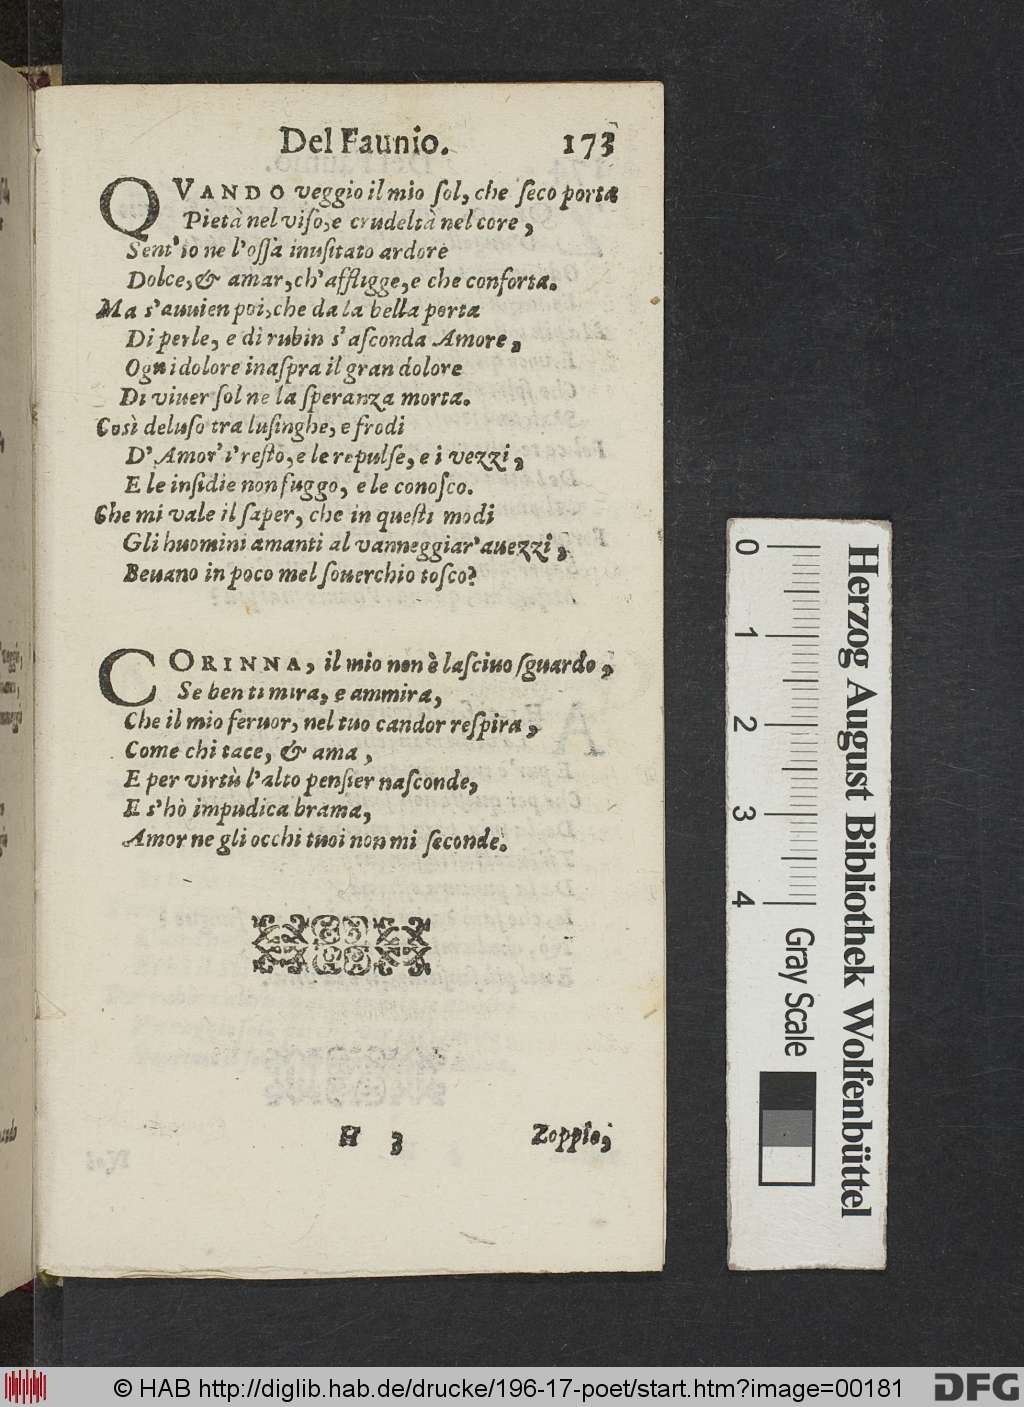 Del Faunio. 173
QVANDO veggio il mio ſol, che ſeco porta
Pietà nel viſo, e crudeltà nel core,
Sent'io ne l'oſſa inuſitato ardore
Dolce, & amar, ch'affligge, e che conforta.
Ma s'auuien poi, che da la bella porta
Di perle, e di rubin s'aſconda Amore,
Ogni dolore inaſpra il gran dolore
Di viuer ſol ne la ſperanza morta.
Così deluſo tra luſinghe, e frodi
D'Amor' i' reſto, e le repulſe, e i vezzi,
E le inſidie non fuggo, e le conoſco.
Che mi vale il ſaper, che in queſti modi
Gli huomini amanti al vanneggiar' auezzi,
Beuano in poco mel ſouerchio toſco?
CORINNA, il mio non è laſciuo ſguardo,
Se ben ti mira, e ammira,
Che il mio feruor, nel tuo candor reſpira,
Come chi tace, & ama,
E per virtù l'alto penſier naſconde,
E s'hò impudica brama,
Amor ne gli occhi tuoi non mi ſeconde.
H 3 Zoppio,
0 1 2 3 4
Gray Scale
Herzog August Bibliothek Wolfenbüttel
© HAB http://diglib.hab.de/drucke/196-17-poet/start.htm?image=00181
DFG